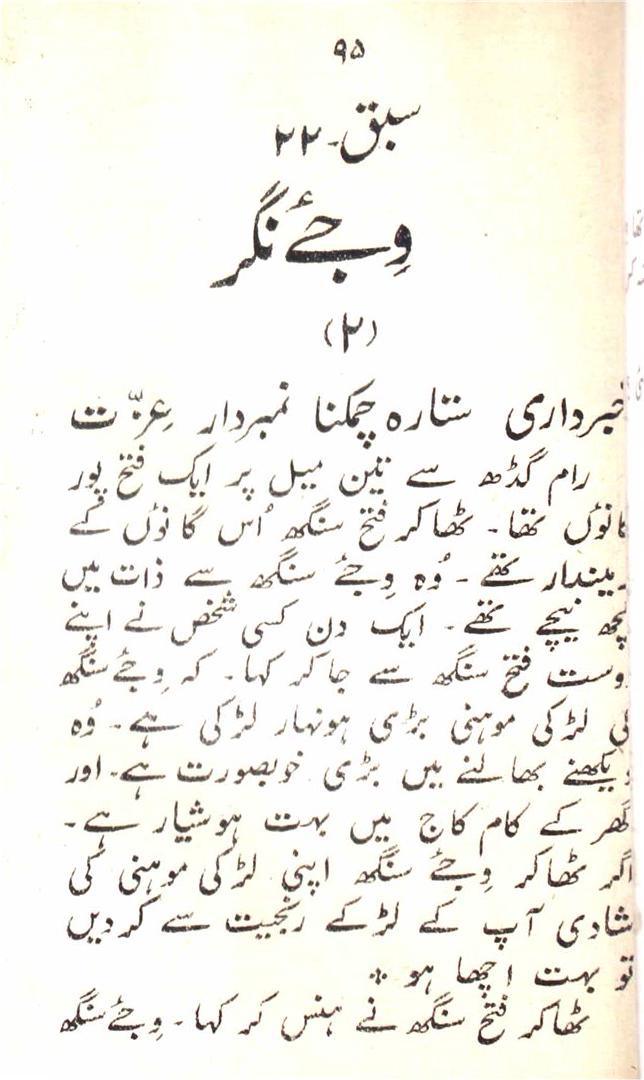 ۹۵
سبق۔ ۲۲
وِجئے نگر
(۲)
خبرداری ستارہ چمکنا نمبردار عِزّت
رام گڈھ سے تین میل پر ایک فتح پور
گانوٗں تھا۔ ٹھاکر فتح سنگھ اُس گانوٗں کے
زمیندار تھے۔ وُہ وِجئے سنگھ سے ذات میں
کچھ نیچے تھے۔ ایک دن کسی شخص نے اپنے
دوست فتح سنگھ سے جا کر کہا۔ کہ وِجئے سنگھ
کی لڑکی موہنی بڑی ہونہار لڑکی ہے۔ وُہ
دیکھنے بھالنے میں بڑی خوبصورت ہے۔ اور
گھر کے کام کاج میں بہت ہوشیار ہے۔
اگر ٹھاکر وِجئے سنگھ اپنی لڑکی موہنی کی
شادی آپ کے لڑکے رنجیت سے کر دیں
تو بہت اچھا ہو ٭
ٹھاکر فتح سنگھ نے ہنس کر کہا۔ وِجئے سنگھ